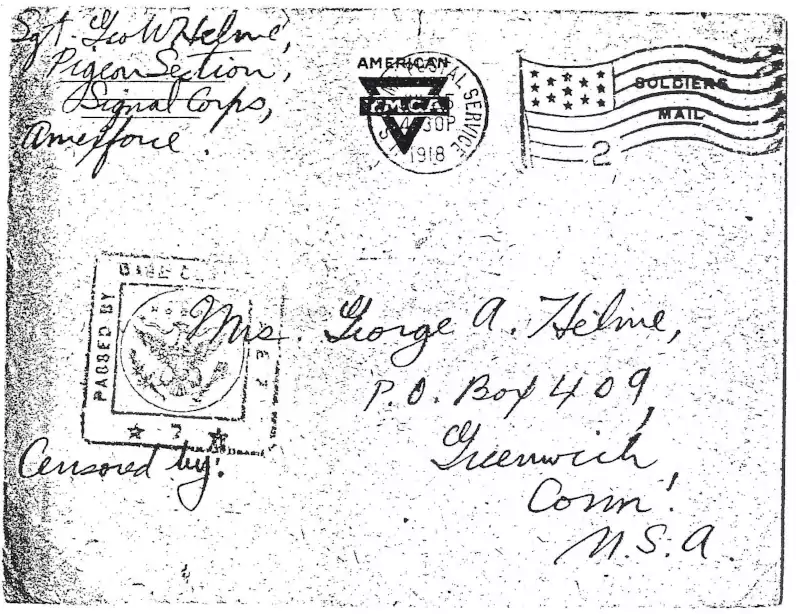 Sgt. Geo W Helme,
Pigeon Section,
Signal Corps,
Amexforce.
AMERICAN
Y.M.C.A.
POSTAL SERVICE
4 30P
1918
SOLDIERS
MAIL
2
PASSED BY
BASE
7
Censored by:
Mrs. George A. Helme,
P.O. Box 409,
Greenwich
Conn!
U.S.A.